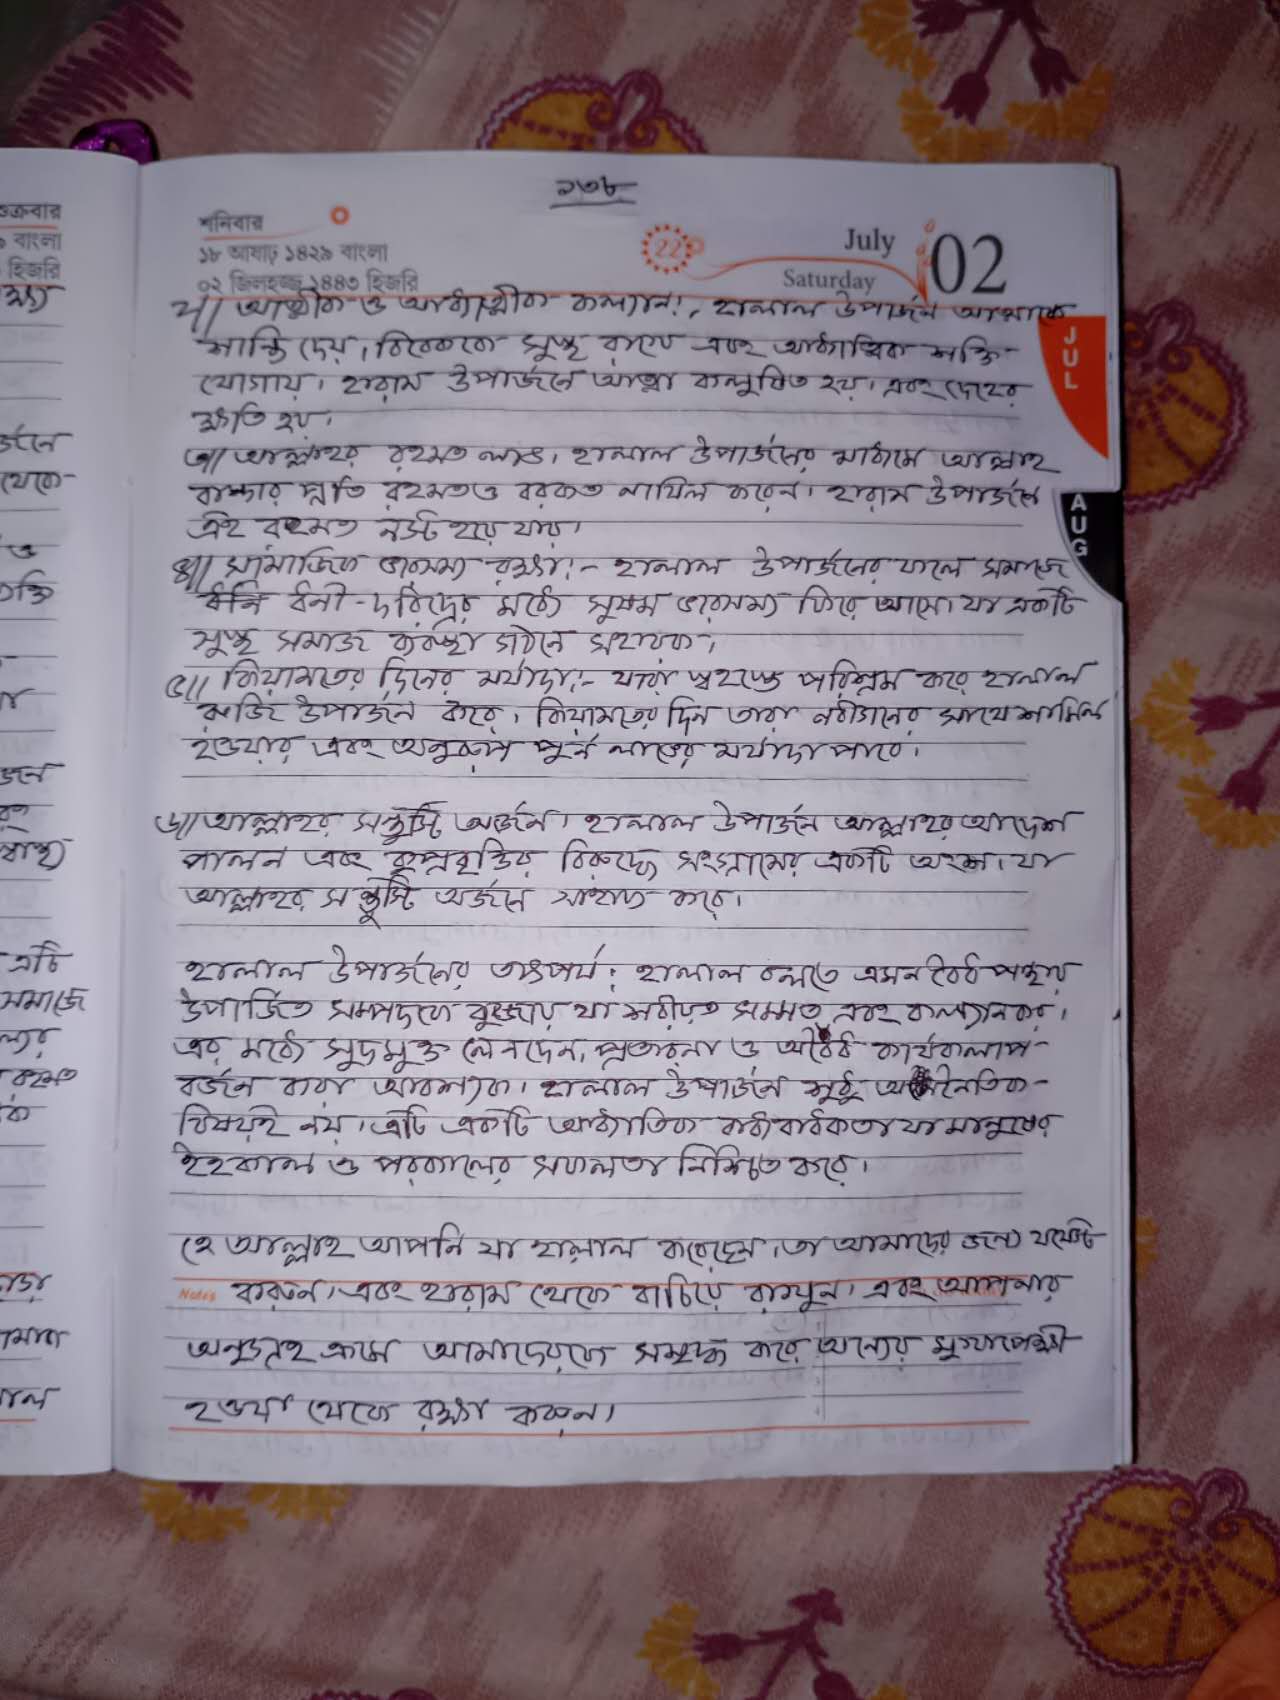 ১৩৮
শনিবার
১৮ আষাঢ় ১৪২৯ বাংলা
০২ জিলহজ্জ ১৪৪৩ হিজরি
22
July
Saturday
02
JUL
AUG
২// আত্মীক ও আধ্যাত্মীক কল্যান:, হালাল উপার্জন আত্মাকে
শান্তি দেয়, বিবেককে সুস্থ রাখে এবং আধ্যাত্মিক শক্তি
যোগায়। হারাম উপার্জনে আত্মা কলুষিত হয়। এবং দেহের
ক্ষতি হয়।
৩// আল্লাহর রহমত লাভ। হালাল উপার্জনের মাধ্যমে আল্লাহ
বান্দার প্রতি রহমত ও বরকত নাযিল করেন। হারাম উপার্জনে
এই রহমত নষ্ট হয়ে যায়।
৪// সামাজিক ভারসম্য রক্ষা:- হালাল উপার্জনের ফলে সমাজে
ধনি ধনী-দরিদ্রের মধ্যে সুষম ভারসম্য ফিরে আসে। যা একটি
সুস্থ সমাজ ব্যবস্থা গঠনে সহায়ক।
৫// কিয়ামতের দিনের মর্যাদা:- যারা স্বহস্তে পরিশ্রম করে হালাল
রুজি উপার্জন করে। কিয়ামতের দিন তারা নবীগনের সাথে শামিল
হওয়ার এবং অনুরুপ পুর্ন লাভের মর্যাদা পাবে।
৬// আল্লাহর সন্তুষ্টি অর্জন। হালাল উপার্জন আল্লাহর আদেশ
পালন এবং কুপ্রবৃত্তির বিরুদ্ধে সংগ্রামের একটি অংশ। যা
আল্লাহর সন্তুষ্টি অর্জনে সাহায্য করে।
হালাল উপার্জনের তাৎপর্য: হালাল বলতে এমন বৈধ পন্থায়
উপার্জিত সম্পদকে বুজায় যা শরীয়ত সম্মত এবং কল্যানকর।
এর মধ্যে সুদমুক্ত লেনদেন, প্রতারনা ও অবৈধ কার্যকলাপ
বর্জন করা আবশ্যক। হালাল উপার্জন শুধু অর্থনৈতিক
বিষয়ই নয়। এটি একটি আধ্যাতিক বাধ্যবাধকতা যা মানুষের
ইহকাল ও পরকালের সফলতা নিশ্চিত করে।
হে আল্লাহ আপনি যা হালাল করেছেন, তা আমাদের জন্যে যথেষ্ট
Notes করুন। এবং হারাম থেকে বাচিয়ে রাখুন। এবং আপনার
অনুগ্রহ ক্রমে আমাদেরকে সমৃদ্ধ করে অন্যের মুখাপেক্ষী
হওয়া থেকে রক্ষা করুন।